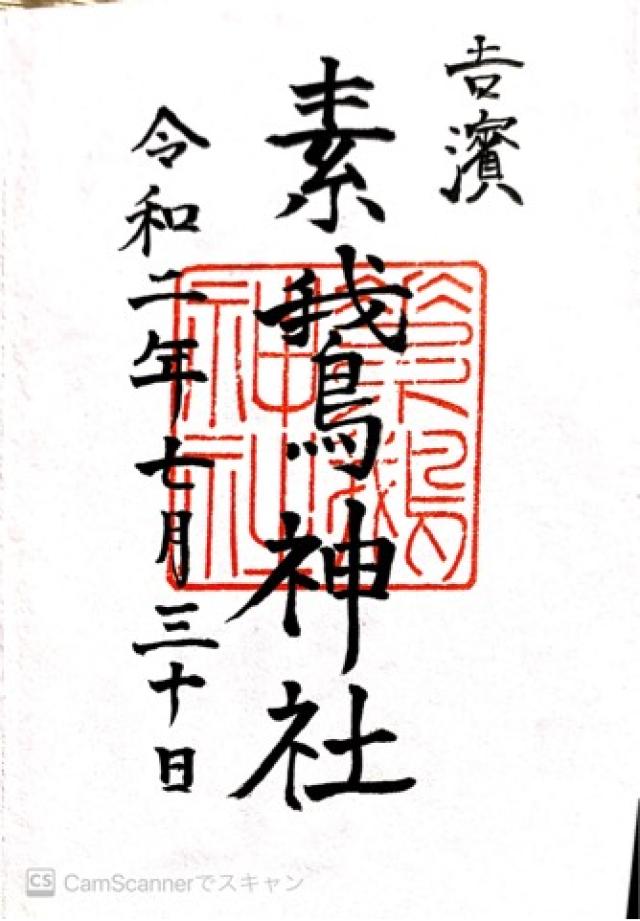 吉濱
素鵞神社
令和二年七月三十日
CS CamScannerでスキャン